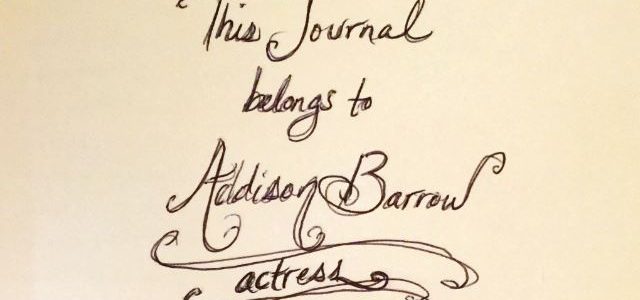 This Journal
belongs to
Addison Barrow
actress